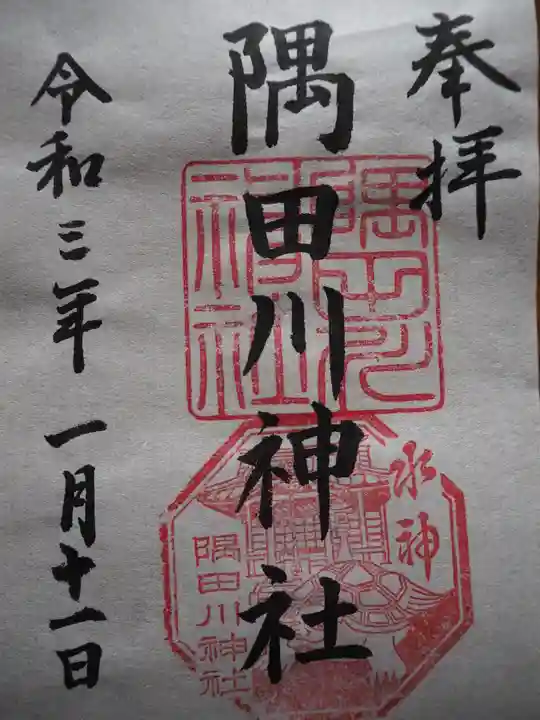 奉拝
隅田川神社
令和三年一月十一日
隅田川神社
水神
隅田川神社